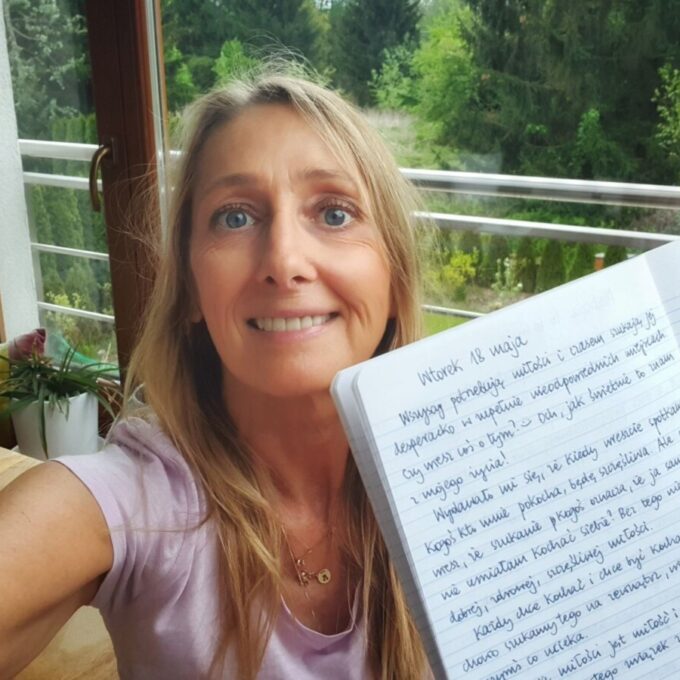 Wtorek 18 maja
Wszyscy potrzebują miłości i czasem szukają jej
desperacko w zupełnie nieodpowiednich miejscach.
Czy wiesz coś o tym? Och, jak świetnie to znam
z mojego życia!
Wydawało mi się, że kiedy wreszcie spotkam
kogoś kto mnie pokocha, będę szczęśliwa. Ale
wiesz, że szukanie kogoś oznacza, że ja sama
nie umiałam kochać siebie? Bez tego nie
dobrej, zdrowej, szczęśliwej miłości.
Każdy chce kochać i chce być
szukamy tego na zewnątrz,
co ucieka.
miłości jest miłość i
związek z